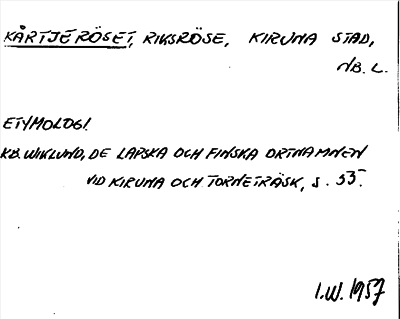 KÅRTJERÖSET, RIKSRÖSE, KIRUNA STAD,
NB. L.
ETYMOLOGI.
KB. WIKLUND, DE LAPSKA OCH FINSKA ORTNAMNEN
VID KIRUNA OCH TORNETRÄSK, S. 55.
I.W. 1957